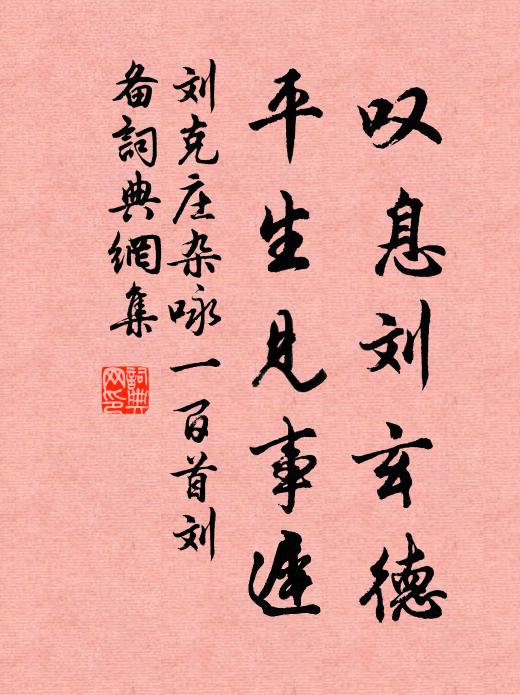 叹息刘玄德
平生见事迟
刘克庄杂咏一百首刘
备词典網集
詞典網印